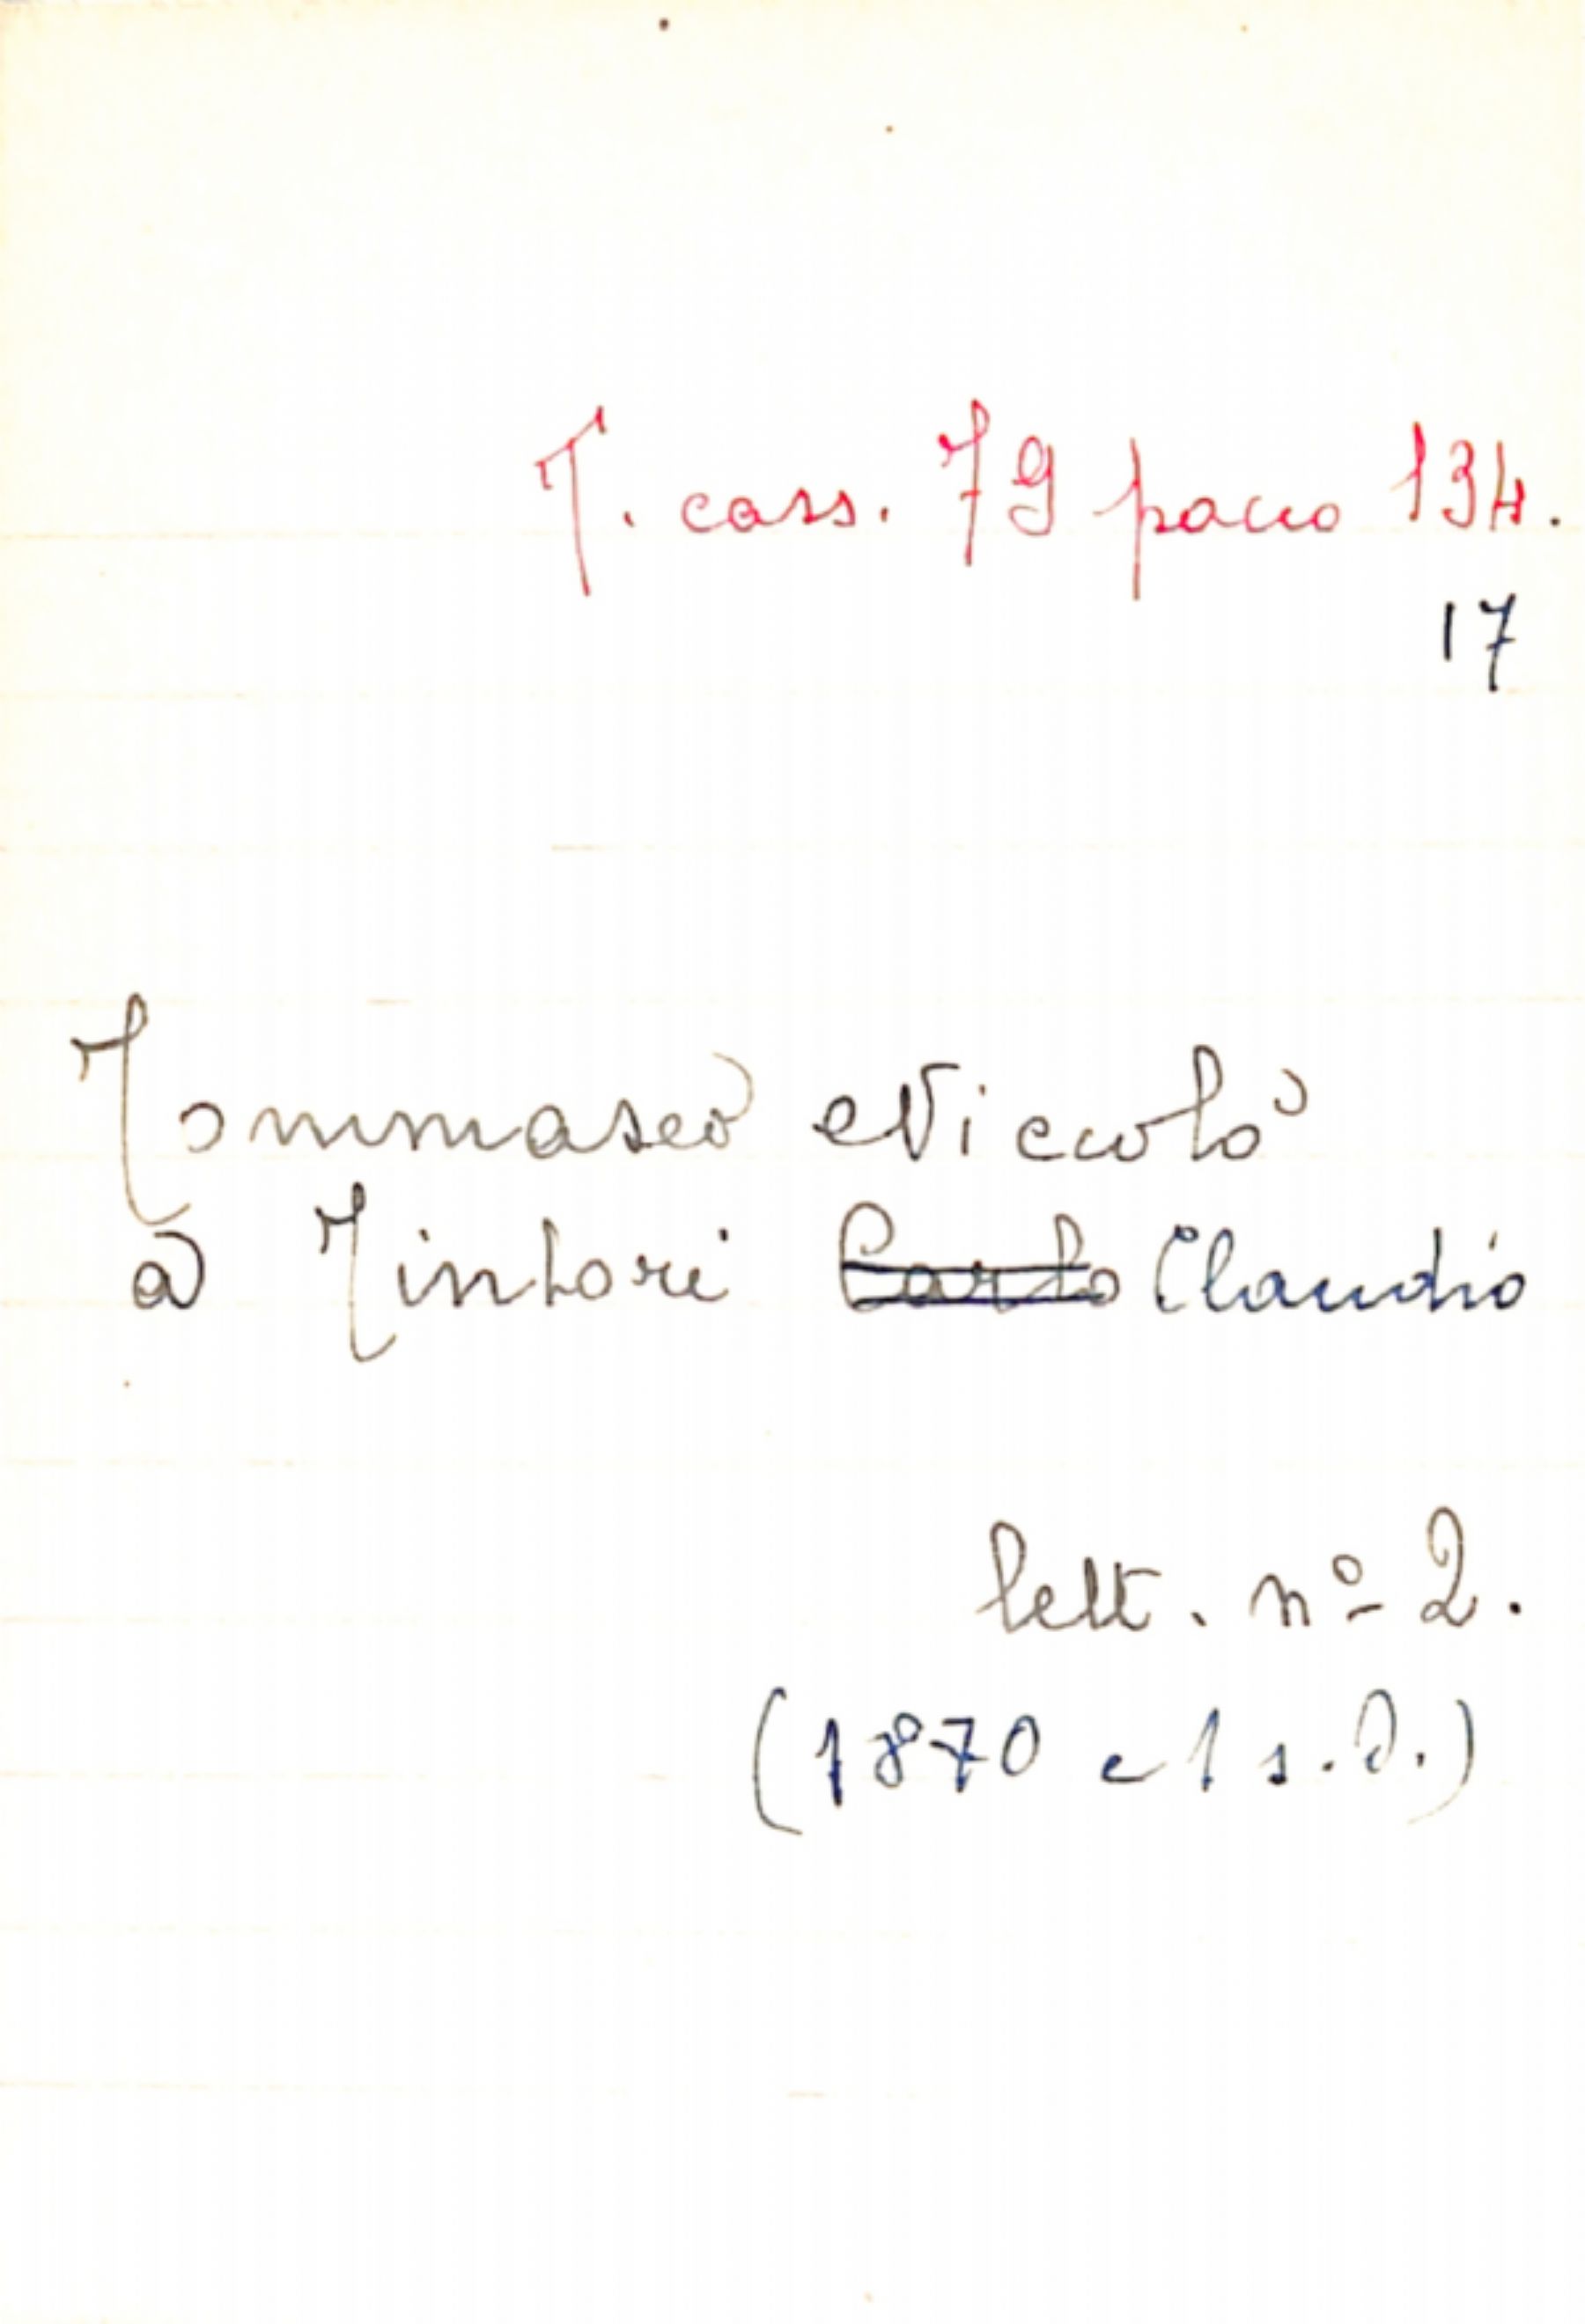 T. cass. 79 pacco 134.
17
Tommaseo Niccolò
a Tintori Carlo Claudio
lett. nº 2.
(1870 e 1 s.d.)